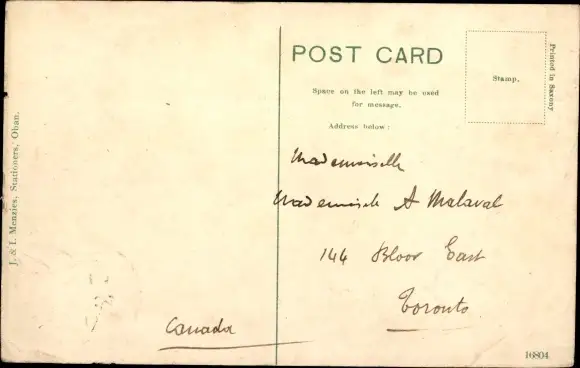 POST CARD
Space on the left may be used
for message.
Address below:
Stamp.
Printed in Saxony
J. & I. Menzies, Stationers, Oban.
Mademoiselle
Mademoiselle A Malaval
144 Bloor East
Toronto
Canada
16804